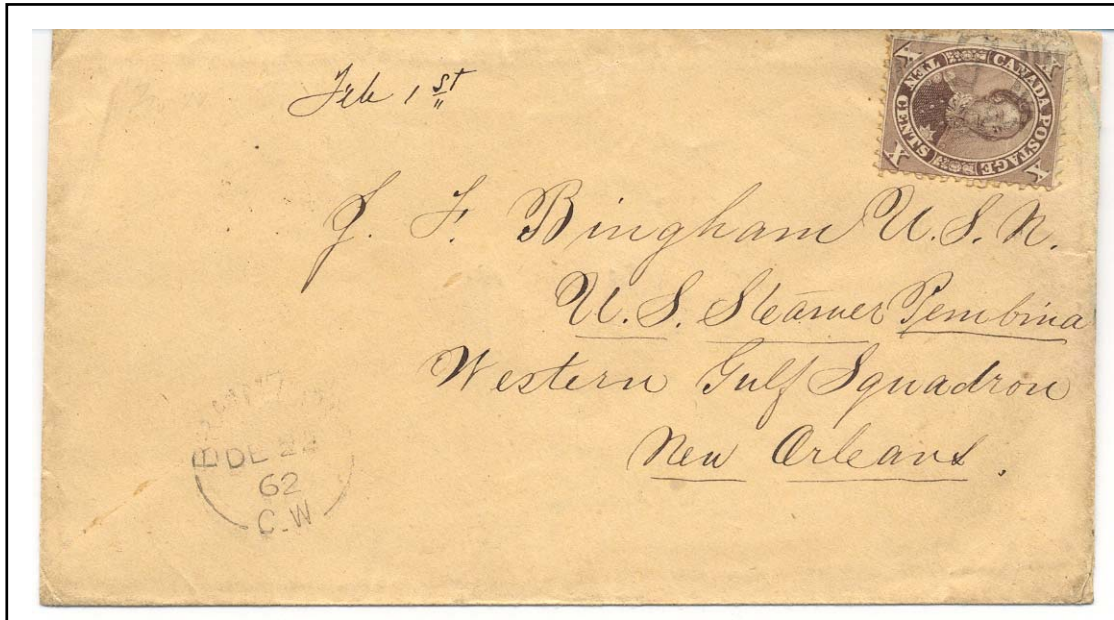 Feb 1st
X X
CANADA POSTAGE
TEN CENTS
X X
J. F. Bingham U.S.N.
U.S. Steamer Pembina
Western Gulf Squadron
New Orleans.
DE 24
62
C.W